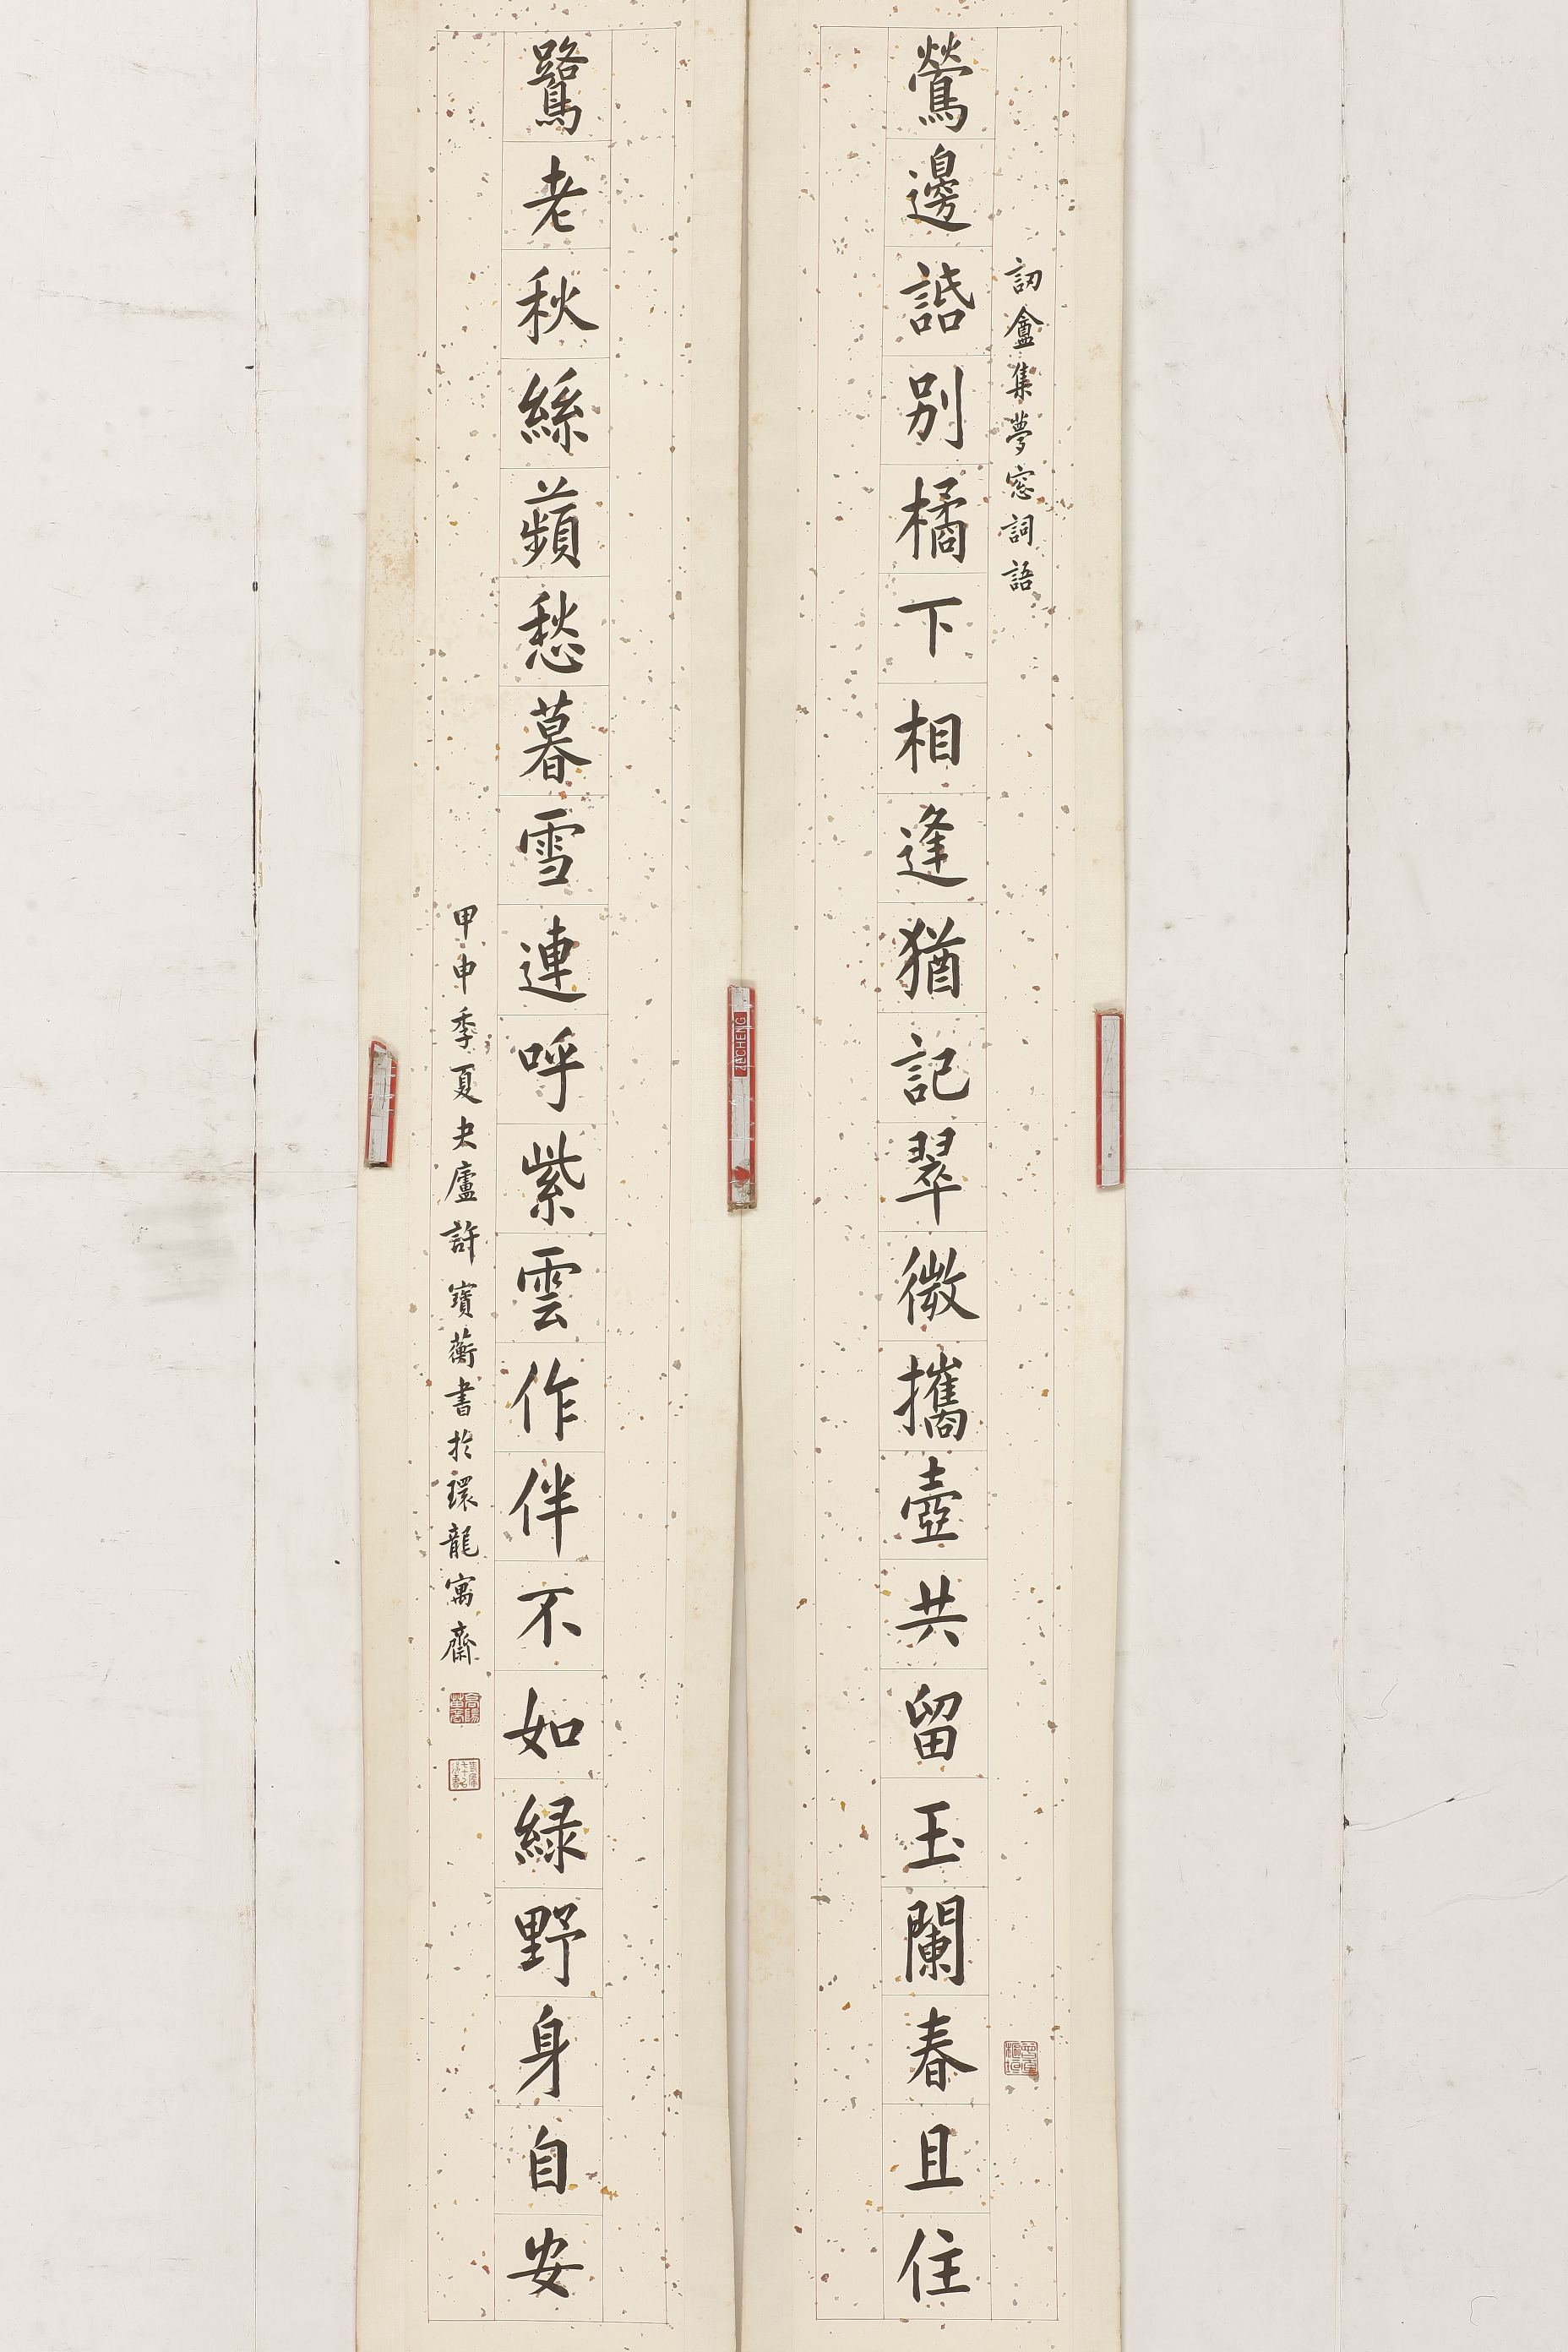 訒盦集夢窓詞語
鶯邊話別橘下相逢猶記翠微攜壺共留玉闌春且住
鷺老秋絲蘋愁暮雪連呼紫雲作伴不如緑野身自安
甲申季夏夬廬許寶蘅書於環龍寓齋